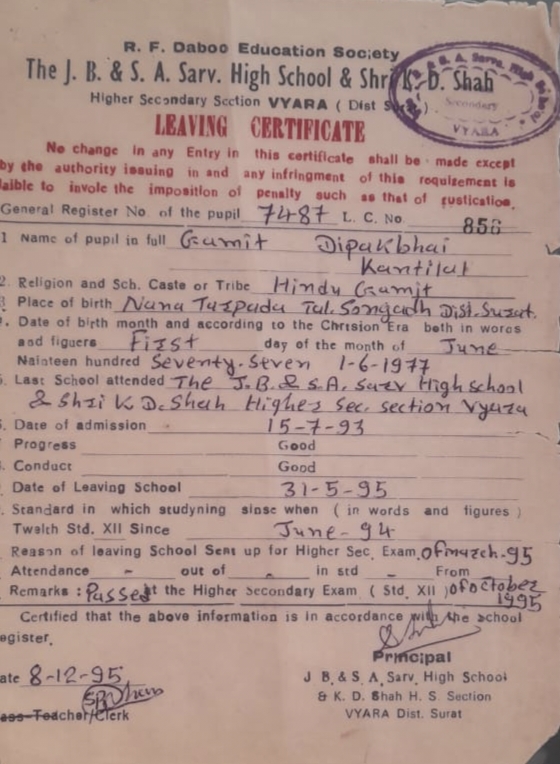 R. F. Daboo Education Society
The J. B. & S. A. Sarv. High School & Shri K. D. Shah
Higher Secondary Section VYARA ( Dist Surat )
Secondary
VYARA
LEAVING CERTIFICATE
No change in any Entry in this certificate shall be made except
by the authority issuing in and any infringment of this requizement is
laible to invole the imposition of penalty such as that of rustication.
General Register No. of the pupil 7487 L. C. No 856
1 Name of pupil in full Gamit Dipakbhai
Kantilal
2. Religion and Sch. Caste or Tribe Hindu Gamit
3 Place of birth Nana Tarpada Tal. Songadh Dist. Surat.
. Date of birth month and according to the Chrision Era beth in words
and figuers First day of the month of June
Nainteen hundred Seventy-Seven 1-6-1977
. Last School attended The J.B. & S.A. Sarv High school
& Shri K D. Shah Higher Sec. section Vyara
. Date of admission 15-7-93
Progress Good
. Conduct Good
Date of Leaving School 31-5-95
Standard in which studyning sinse when ( in words and figures )
Twelth Std. XII Since June-94
Reason of leaving School Sent up for Higher Sec. Exam. Of march-95
Attendance - out of - in std - From
Remarks : Passed at the Higher Secondary Exam ( Std. XII ) of october
1995
Certified that the above information is in accordance with the school
egister.
Principal
ate 8-12-95
J B. & S. A. Sarv. High School
& K. D. Shah H. S. Section
ass-Teacher/Clerk
VYARA Dist. Surat